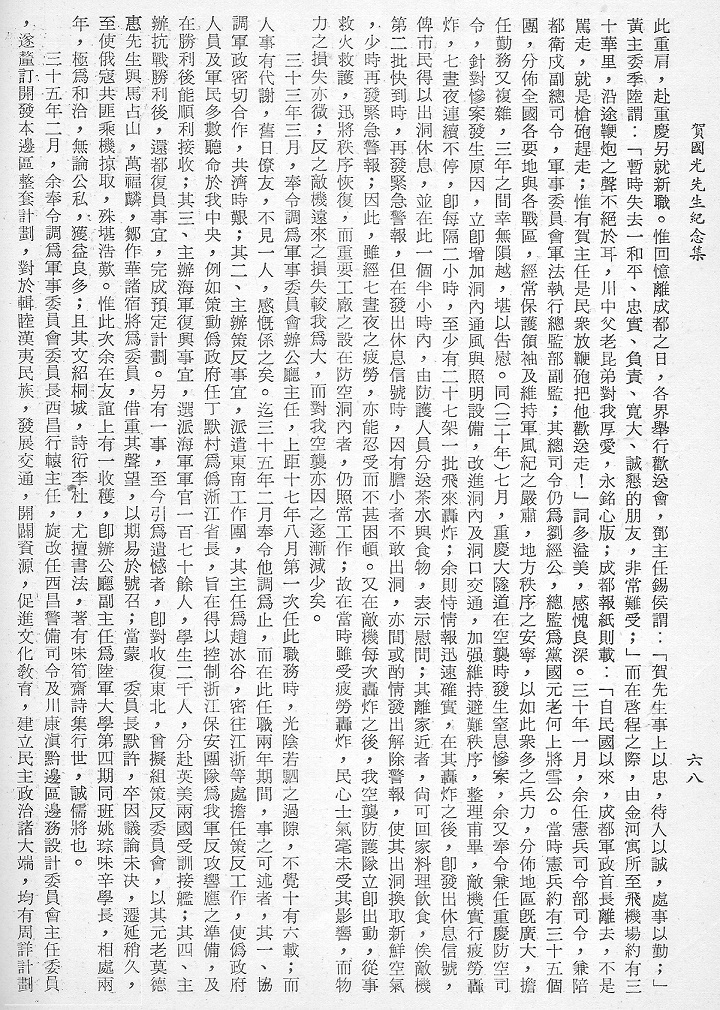 賀國光先生紀念集
六八
此重肩，赴重慶另就新職。惟回憶離成都之日，各界舉行歡送會，鄧主任錫侯謂：「賀先生事上以忠，待人以誠，處事以勤；」
黃主委季陸謂：「暫時失去一和平、忠實、負責、寬大、誠懇的朋友，非常難受；」而在啓程之際，由金河寓所至飛機場約有三
十華里，沿途鞭炮之聲不絕於耳，川中父老昆弟對我厚愛，永銘心版；成都報紙則載：「自民國以來，成都軍政首長離去，不是
罵走，就是槍砲趕走；惟有賀主任是民衆放鞭砲把他歡送走！」詞多溢美，感愧良深。三十年一月，余任憲兵司令部司令，兼陪
都衛戍副總司令，軍事委員會軍法執行總監部副監；其總司令仍爲劉經公，總監爲黨國元老何上將雪公。當時憲兵約有三十五個
團，分佈全國各要地與各戰區，經常保護領袖及維持軍風紀之嚴肅，地方秩序之安寧，以如此衆多之兵力，分佈地區旣廣大，擔
任勤務又複雜，三年之間幸無隕越，堪以告慰。同（三十年）七月，重慶大隧道在空襲時發生窒息慘案，余又奉令兼任重慶防空司
令，針對慘案發生原因，立卽增加洞內通風與照明設備，改進洞內及洞口交通，加强維持避難秩序，整理甫畢，敵機實行疲勞轟
炸，七晝夜連續不停，卽每隔二小時，至少有二十七架一批飛來轟炸；余則恃情報迅速確實，在其轟炸之後，卽發出休息信號，
俾市民得以出洞休息，並在此一個半小時內，由防護人員分送茶水與食物，表示慰問；其離家近者，尙可回家料理飲食，俟敵機
第二批快到時，再發緊急警報，但在發出休息信號時，因有膽小者不敢出洞，亦間或酌情發出解除警報，使其出洞換取新鮮空氣
，少時再發緊急警報；因此，雖經七晝夜之疲勞，亦能忍受而不甚困頓。又在敵機每次轟炸之後，我空襲防護隊立卽出動，從事
救火救護，迅將秩序恢復，而重要工廠之設在防空洞內者，仍照常工作；故在當時雖受疲勞轟炸，民心士氣毫未受其影響，而物
力之損失亦微；反之敵機遠來之損失較我爲大，而對我空襲亦因之逐漸減少矣。
三十三年三月，奉令調爲軍事委員會辦公廳主任，上距十七年八月第一次任此職務時，光陰若駟之過隙，不覺十有六載；而
人事有代謝，舊日僚友，不見一人，感慨係之矣。迄三十五年二月奉令他調爲止，而在此任職兩年期間，事之可述者，其一、協
調軍政密切合作，共濟時艱；其二、主辦策反事宜，派遣東南工作團，其主任爲趙冰谷，密往江浙等處擔任策反工作，使僞政府
人員及軍民多數聽命於我中央，例如策動僞政府任丁默村爲僞浙江省長，旨在得以控制浙江保安團隊爲我軍反攻響應之準備，及
在勝利後能順利接收；其三、主辦海軍復興事宜，選派海軍軍官一百七十餘人，學生二千人，分赴英美兩國受訓接艦；其四、主
辦抗戰勝利後，還都復員事宜，完成預定計劃。另有一事，至今引爲遺憾者，卽對收復東北，曾擬組策反委員會，以其元老莫德
惠先生與馬占山，萬福麟，鄒作華諸宿將爲委員，借重其聲望，以期易於號召；當蒙　委員長默許，卒因議論未決，遷延稍久，
至使俄寇共匪乘機掠取，殊堪浩歎。惟此次余在友誼上有一收穫，卽辦公廳副主任爲陸軍大學第四期同班姚琮味辛學長，相處兩
年，極爲和洽，無論公私，獲益良多；且其文紹桐城，詩衍李杜，尤擅書法，著有味筍齋詩集行世，誠儒將也。
三十五年二月，余奉令調爲軍事委員會委員長西昌行轅主任，旋改任西昌警備司令及川康滇黔邊區邊務設計委員會主任委員
，遂釐訂開發本邊區整套計劃，對於輯睦漢夷民族，發展交通，開闢資源，促進文化敎育，建立民主政治諸大端，均有周詳計劃